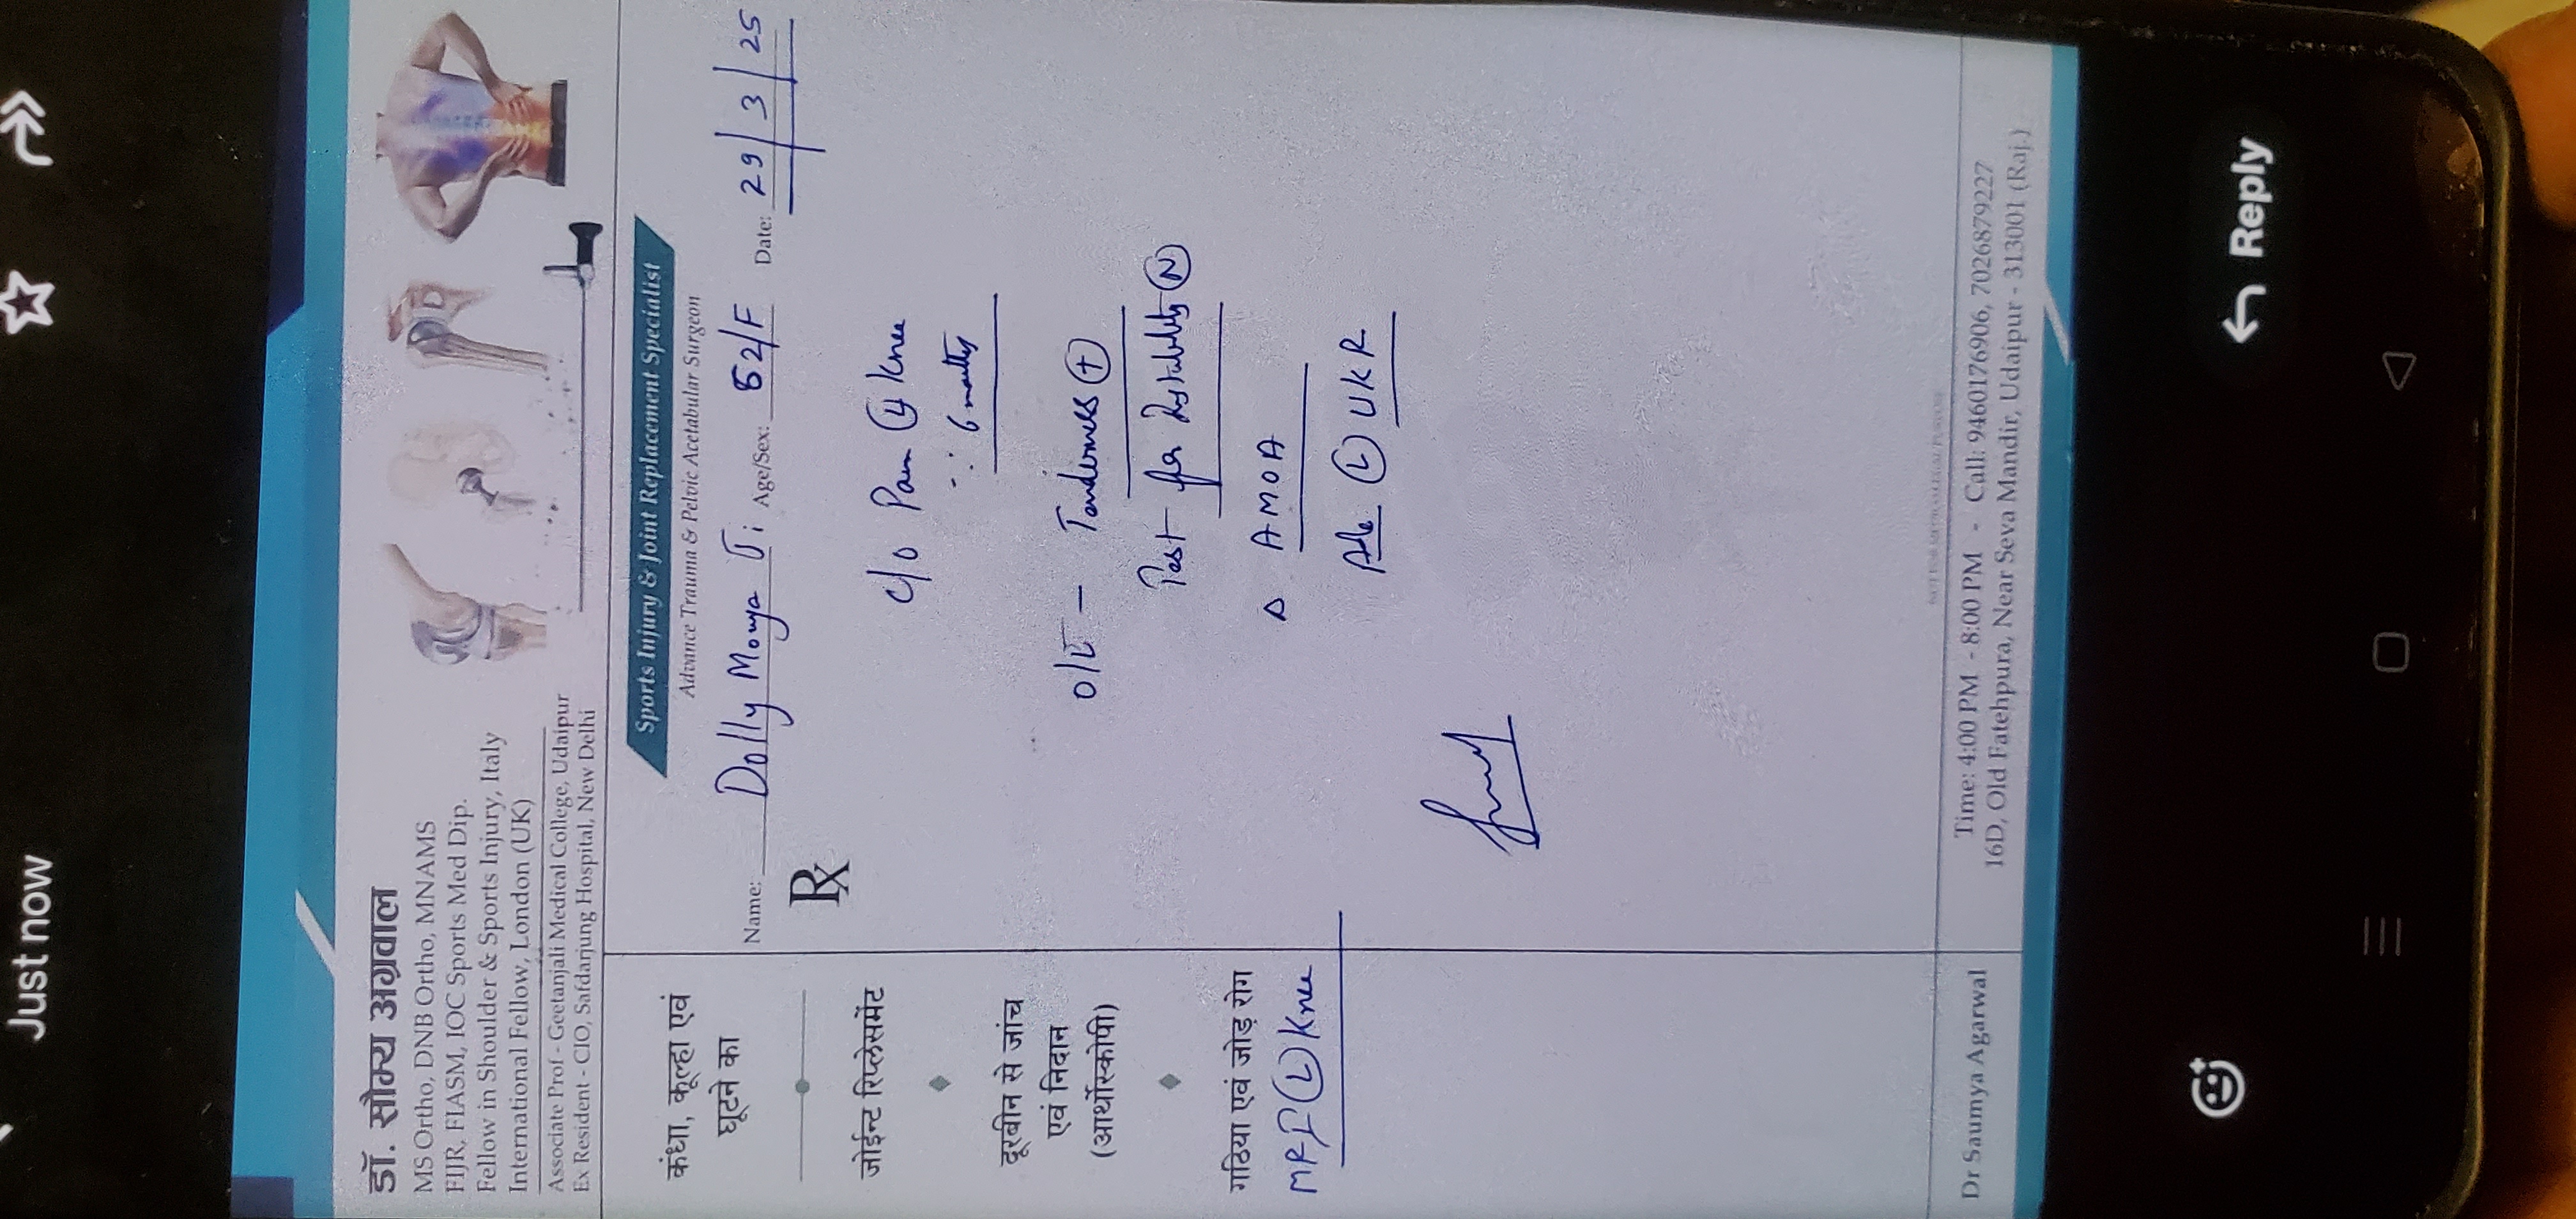 Just now
डॉ. सौम्य अग्रवाल
MS Ortho, DNB Ortho, MNAMS
FIJR, FIASM, IOC Sports Med Dip.
Fellow in Shoulder & Sports Injury, Italy
International Fellow, London (UK)
Associate Prof - Geetanjali Medical College, Udaipur
Ex Resident - CIO, Safdarjung Hospital, New Delhi
Sports Injury & Joint Replacement Specialist
Advance Trauma & Pelvic Acetabular Surgeon
Name: Dolly Ji Age/Sex: 52/F Date: 29/3/25
कंधा, कूल्हा एवं
घूटने का
जोईन्ट रिप्लेसमेंट
दूरबीन से जांच
एवं निदान
(आर्थोस्कोपी)
गठिया एवं जोड़ रोग
MRI (L) Knee
Rx
C/O Pain (L) Knee
∵ 6 months
O/E - Tenderness (+)
Test for Instability (N)
Δ AMOA
Adv (L) UKR
Dr Saumya Agarwal
Time: 4:00 PM - 8:00 PM - Call: 9460176906, 7026879227
16D, Old Fatehpura, Near Seva Mandir, Udaipur - 313001 (Raj.)
Reply